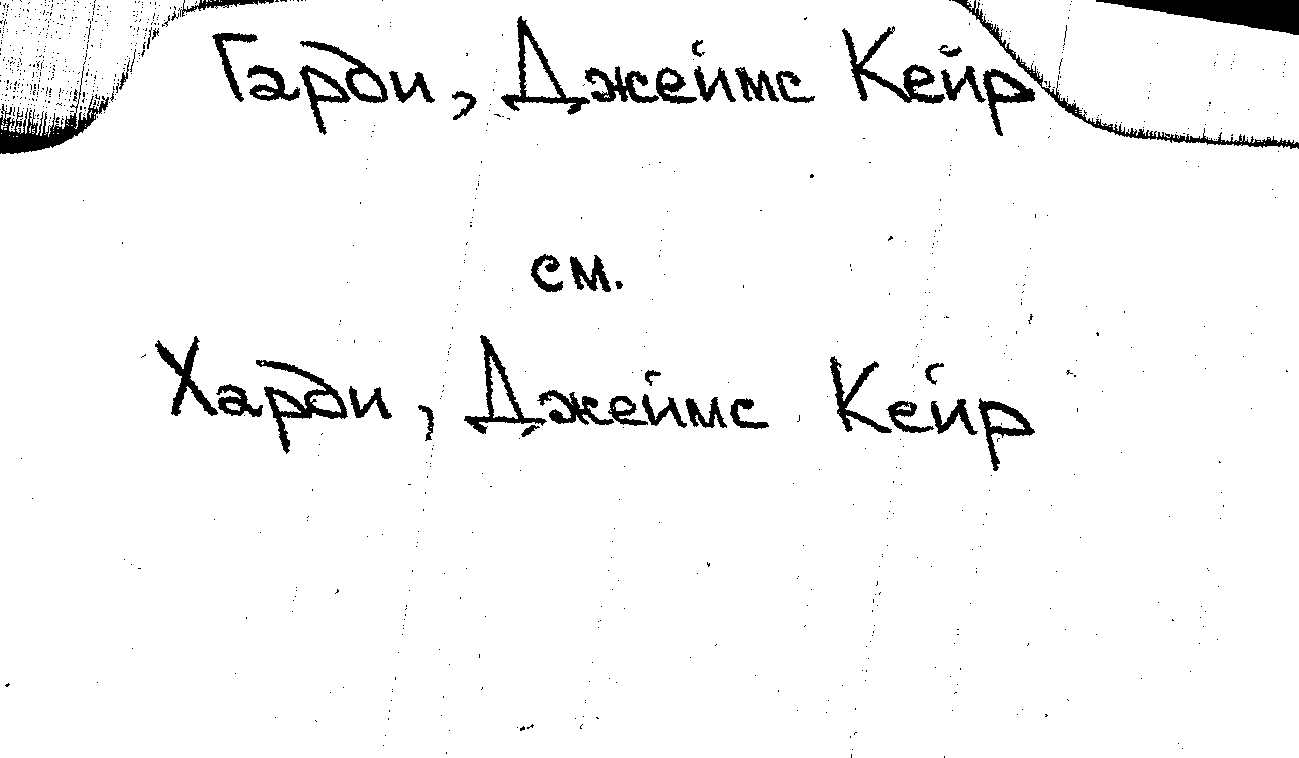 Гарди, Джеймс Кейр
см.
Харди, Джеймс Кейр